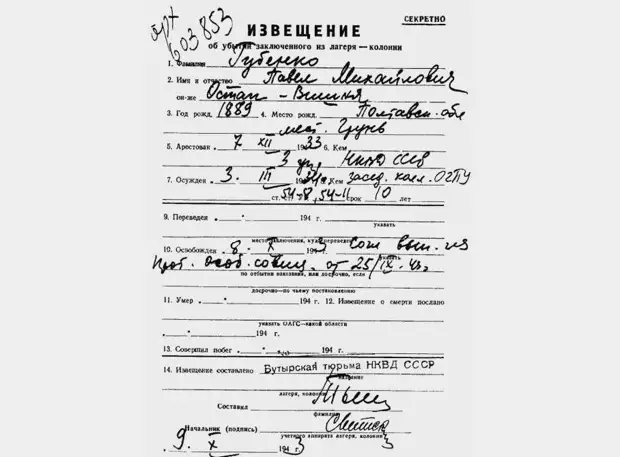 СЕКРЕТНО
арх 603853
ИЗВЕЩЕНИЕ
об убытии заключенного из лагеря — колонии
1. Фамилия Губенко
2. Имя и отчество Павел Михайлович
он-же Остап - Вишня
3. Год рожд. 1889 4. Место рожд. Полтавск. обл
мест. Грунь
5. Арестован 7 XII 1933 6. Кем
3 НКВД СССР
7. Осужден 3. III 1934 г. Кем засед. колл. ОГПУ
ст. 54-8, 54-11 срок 10 лет
9. Переведен " " 194 г.
указать
место заключения, куда переведен
10. Освобожден 8 X 1943 вып. из
прот. особ. совещ. от 25/IX-43г.
по отбытии наказания, или досрочно, если
досрочно—по чьему постановлению
11. Умер " " 194 г. 12. Извещение о смерти послано
указать ОАГС—какой области
" " 194 г.
13. Совершил побег " " 194 г.
14. Извещение составлено Бутырская тюрьма НКВД СССР
название
лагеря, колонии
Составил
фамилия
Начальник (подпись)
учетного аппарата лагеря, колонии
9. X 1943